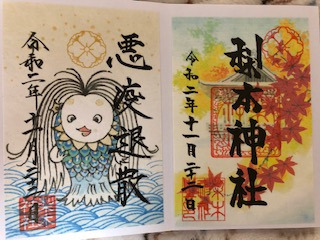 悪疫退散
令和二年十一月二十二日
梨木神社
令和二年十一月二十二日